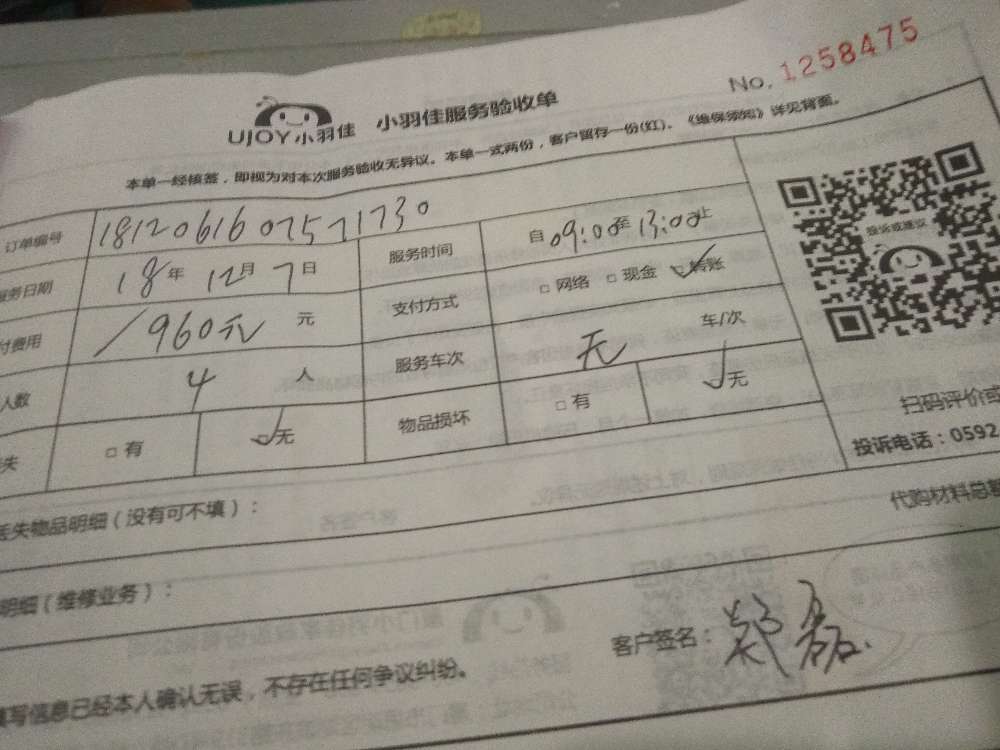 No. 1258475
UJOY小羽佳 小羽佳服务验收单
本单一经核签，即视为对本次服务验收无异议。本单一式两份，客户留存一份(红)。《维保须知》详见背面。
订单编号 1812061607571730 服务时间 自09:00至13:00止
服务日期 18年 12月 7日 支付方式 □网络 □现金 ✓转账
付费用 /960元 元 服务车次 无 车/次
人数 4 人 物品损坏 □有 ☑无
失 □有 ☑无
投诉或建议
扫码评价或
投诉电话：0592
丢失物品明细（没有可不填）：
代购材料总额
明细（维修业务）：
客户签名：郑磊
填写信息已经本人确认无误，不存在任何争议纠纷。